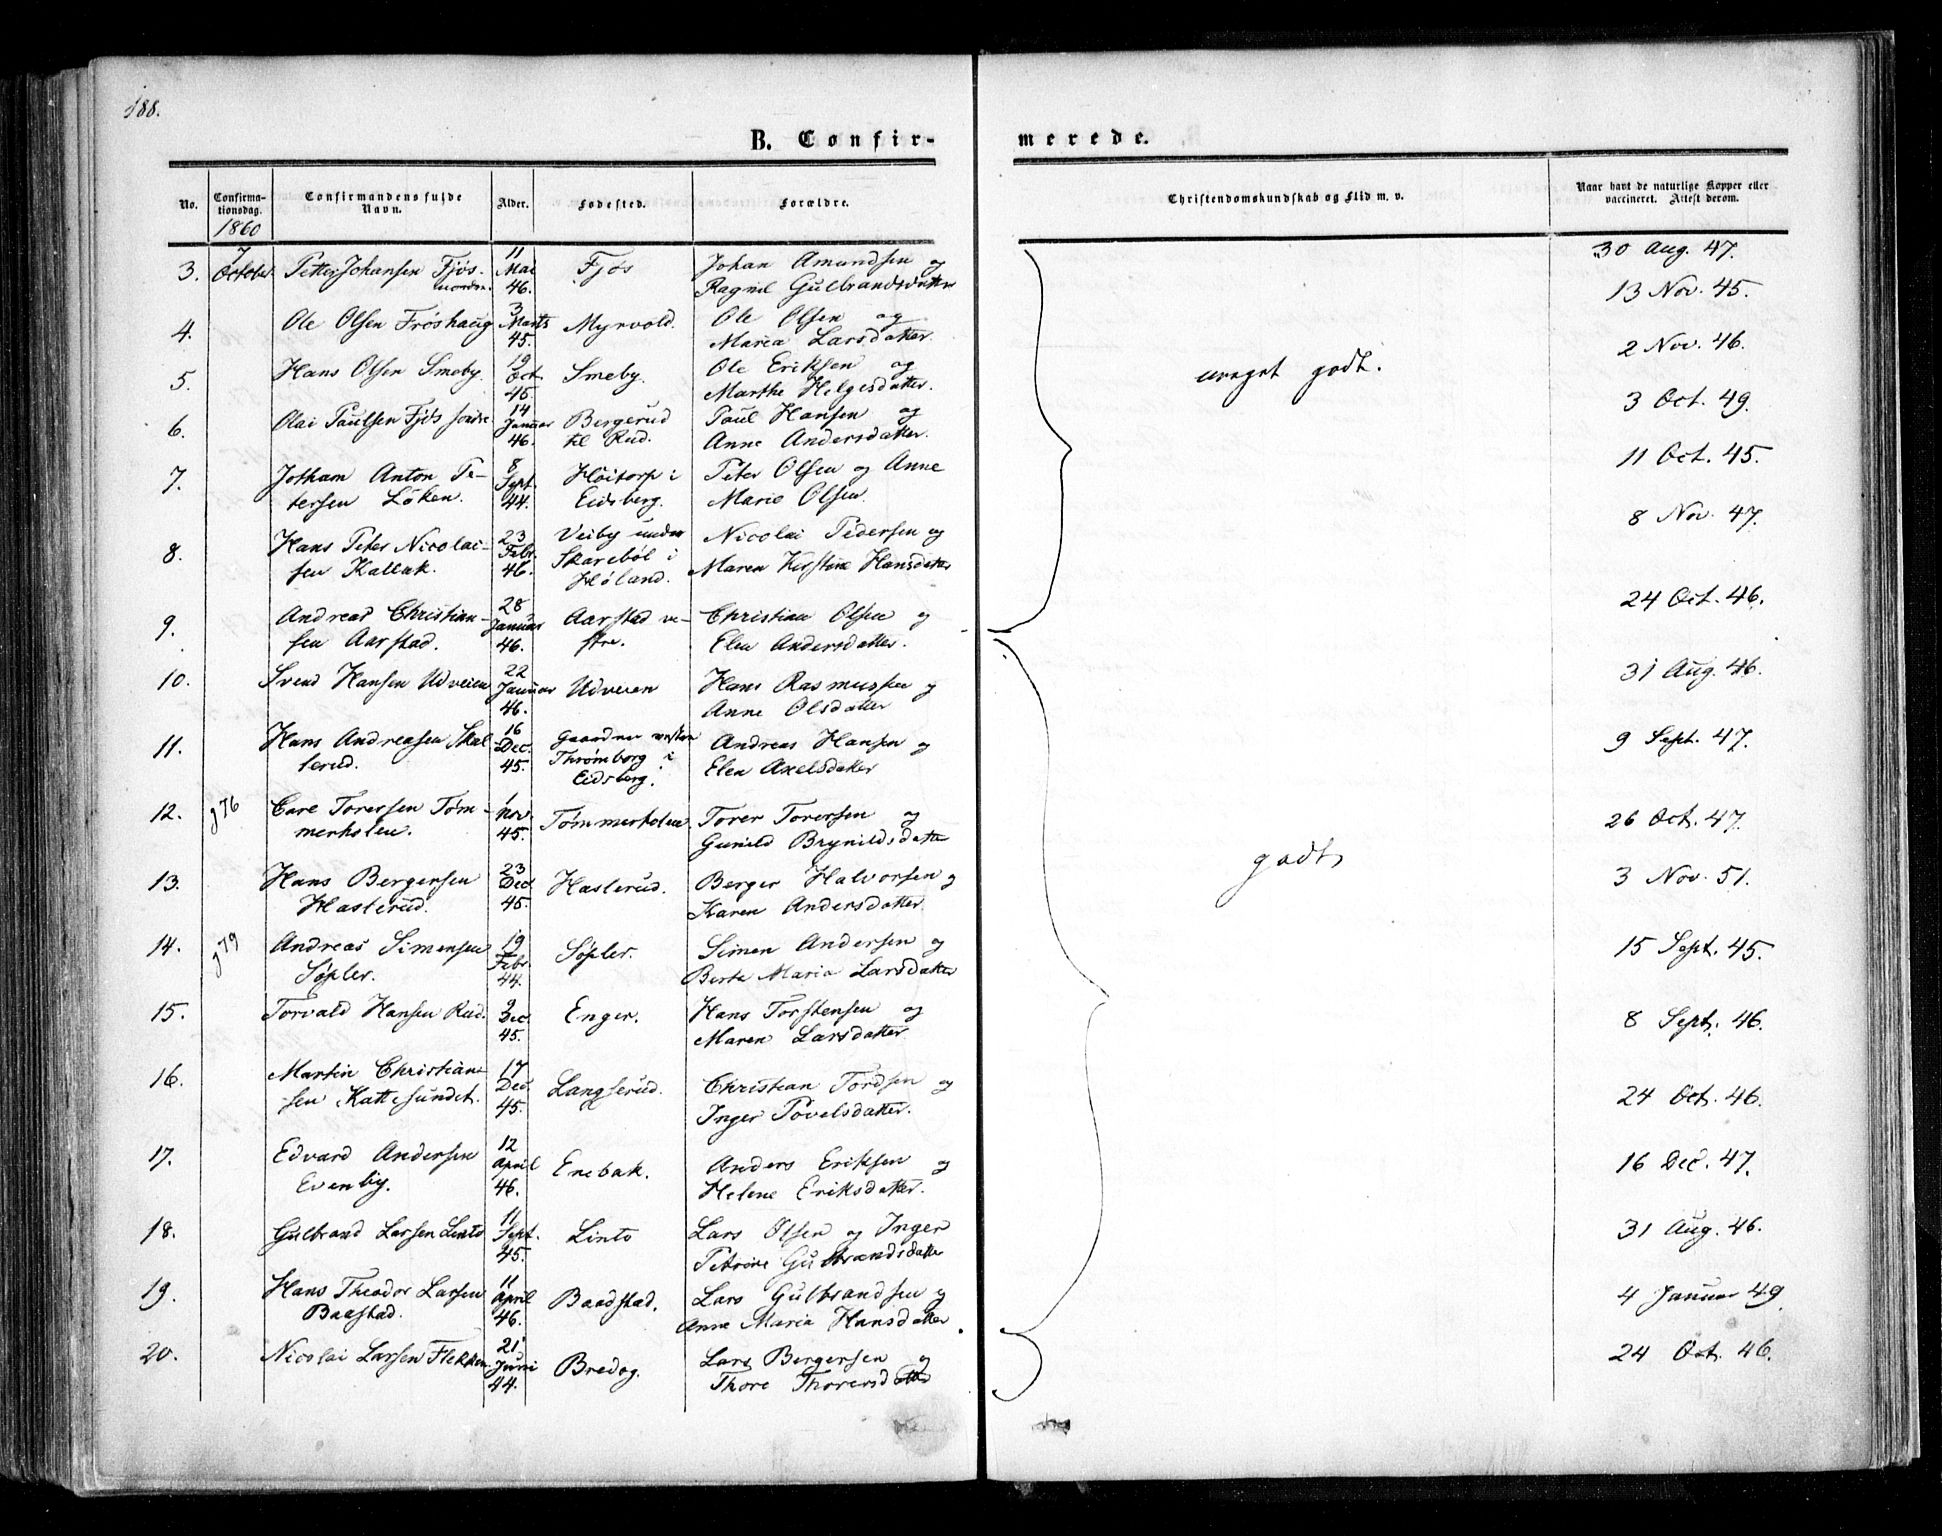 188.
B. Confir-
merede.
No.
Confirma-
tionsdag.
1860
Confirmandens fulde
Navn.
Alder.
Fødested.
Forældre.
Christendomskundskab og Flid m. v.
Naar havt de naturlige Kopper eller
vaccineret. Attest derom.
3. 7 October Petter Johansen Fjøs nordre. 11 Mai 46. Fjøs Johan Amundsen og
Ragnil Gulbrandsdatter
30 Aug. 47.
4. Ole Olsen Frøshaug 3 Marts 45. Myrvold. Ole Olsen og
Maria Larsdatter.
13 Nov. 45.
5. Hans Olsen Smeby. 19 Oct 45. Smeby. Ole Eriksen og
Marthe Helgesdatter.
2 Nov. 46.
meget godt.
6. Olai Paulsen Fjøs søndre 14 Januar 46. Bergerud
til Rud. Paul Hansen og
Anne Andersdatter.
3 Oct. 49.
7. Jotham Anton Pe-
tersen Løken. 8 Sept. 44. Høitorp i
Eidsberg. Peter Olsen og Anne
Marie Olsen.
11 Oct. 45.
8. Hans Peter Nicolai-
sen Kallak. 23 Febr. 46. Veiby under
Skarebøl i
Høland. Nicolai Pedersen og
Maren Kirstine Hansdatter
8 Nov. 47.
9. Andreas Christian-
sen Aarstad. 28 Januar 46. Aarstad ve-
stre. Christian Olsen og
Elen Andersdatter.
24 Oct. 46.
10. Svend Hansen Udveien 22 Januar 46. Udveien Hans Rasmussen og
Anne Olsdatter
31 Aug. 46.
11. Hans Andreasen Skal
lerud. 16 Dec. 45. Gaarden vestre
Thrømborg i
Eidsberg. Andreas Hansen og
Elen Axelsdatter
9 Sept. 47.
12. g 76 Carl Torersen Tøm-
merholen. 1 Nov. 45. Tømmerholen. Torer Torersen og
Gunild Brynildsdatter
26 Oct. 47.
godt
13. Hans Bergersen
Haslerud. 23 Dec 45. Haslerud. Berger Halvorsen og
Karen Andersdatter.
3 Nov. 51.
14. g 79 Andreas Simensen
Søpler. 19 Febr. 44. Søpler. Simen Andersen og
Berte Maria Larsdatter
15 Sept. 45.
15. Torvald Hansen Rud. 9 Dec. 45. Enger. Hans Torstensen og
Maren Larsdatter
8 Sept. 46.
16. Martin Christian-
sen Kattesundet. 17 Dec. 45. Langserud. Christian Tordsen og
Inger Povelsdatter.
24 Oct. 46.
17. Edvard Andersen
Evenby. 12 April 46. Enebak. Anders Eriksen og
Helene Eriksdatter.
16 Dec. 47.
18. Gulbrand Larsen Linto 11 Sept. 45. Linto Lars Olsen og Inger
Petrine Gulbrandsdatter
31 Aug. 46.
19. Hans Theodor Larsen
Baastad. 11 April 46. Baadstad. Lars Gulbrandsen og
Anne Maria Hansdatter
4 Januar 49.
20. Nicolai Larsen Flekken. 21 Juni 44. Bredog. Lars Bergersen og
Thore Thorersdatter
24 Oct. 46.